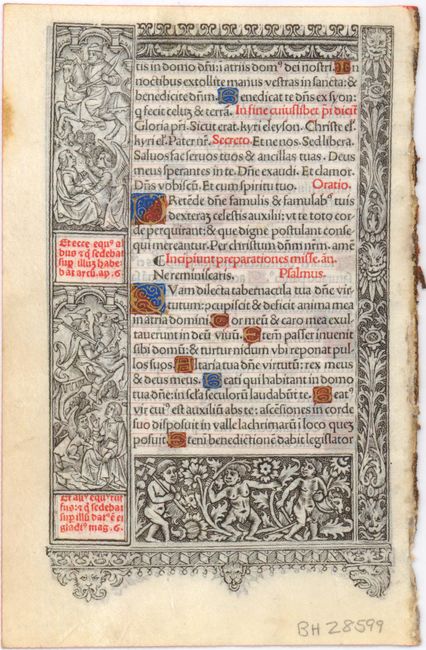 tis in domo dñi: i atriis dom⁹ dei nostri. In
noctibus extollite manus vestras in sancta: &
benedicite dñm. Benedicat te dñs ex syon:
q fecit celuz & terrã. In fine cuiuslibet ps dicit̃
Gloria pr̃i. Sicut erat. kyri eleyson. Christe el.
kyri el. Pater nr̃. Secreto. Et ne nos. Sed libera.
Saluos fac seruos tuos & ancillas tuas. Deus
meus sperantes in te. Dñe exaudi. Et clamor.
Dñs vobiscũ. Et cum spiritu tuo. Oratio.
PRetẽde dñe famulis & famulab⁹ tuis
dexterã celestis auxilii: vt te toto cor
de perquirant: & que digne postulant conse
qui mereantur. Per christum dñm nr̃m. amẽ
¶ Incipiunt preparationes misse. añ.
Ne reminiscaris. Psalmus.
QVam dilecta tabernacula tua dñe vir
tutum: ɔcupiscit & deficit anima mea
in atria domini. Cor meũ & caro mea exul
tauerunt in deũ viuũ. Etem̃ passer inuenit
sibi domũ: & turtur nidum vbi reponat pul
los suos. Altaria tua dñe virtutũ: rex meus
& deus meus. Beati qui habitant in domo
tua dñe: in secła seculorũ laudabũt te. Beat⁹
vir cui⁹ est auxiliũ abs te: ascẽsiones in corde
suo disposuit in valle lachrimarũ i loco quez
posuit. Etem̃ benedictionẽ dabit legislator
Et ecce equ⁹ al
bus & q̃ sedebat
sup illuz habe
bat arcũ. ap. 6.
Et ali⁹ equ⁹ ruf
fus: & q̃ sedebat
sup illũ dat⁹ ẽ ei
gladi⁹ mag. 6.
BH 28599